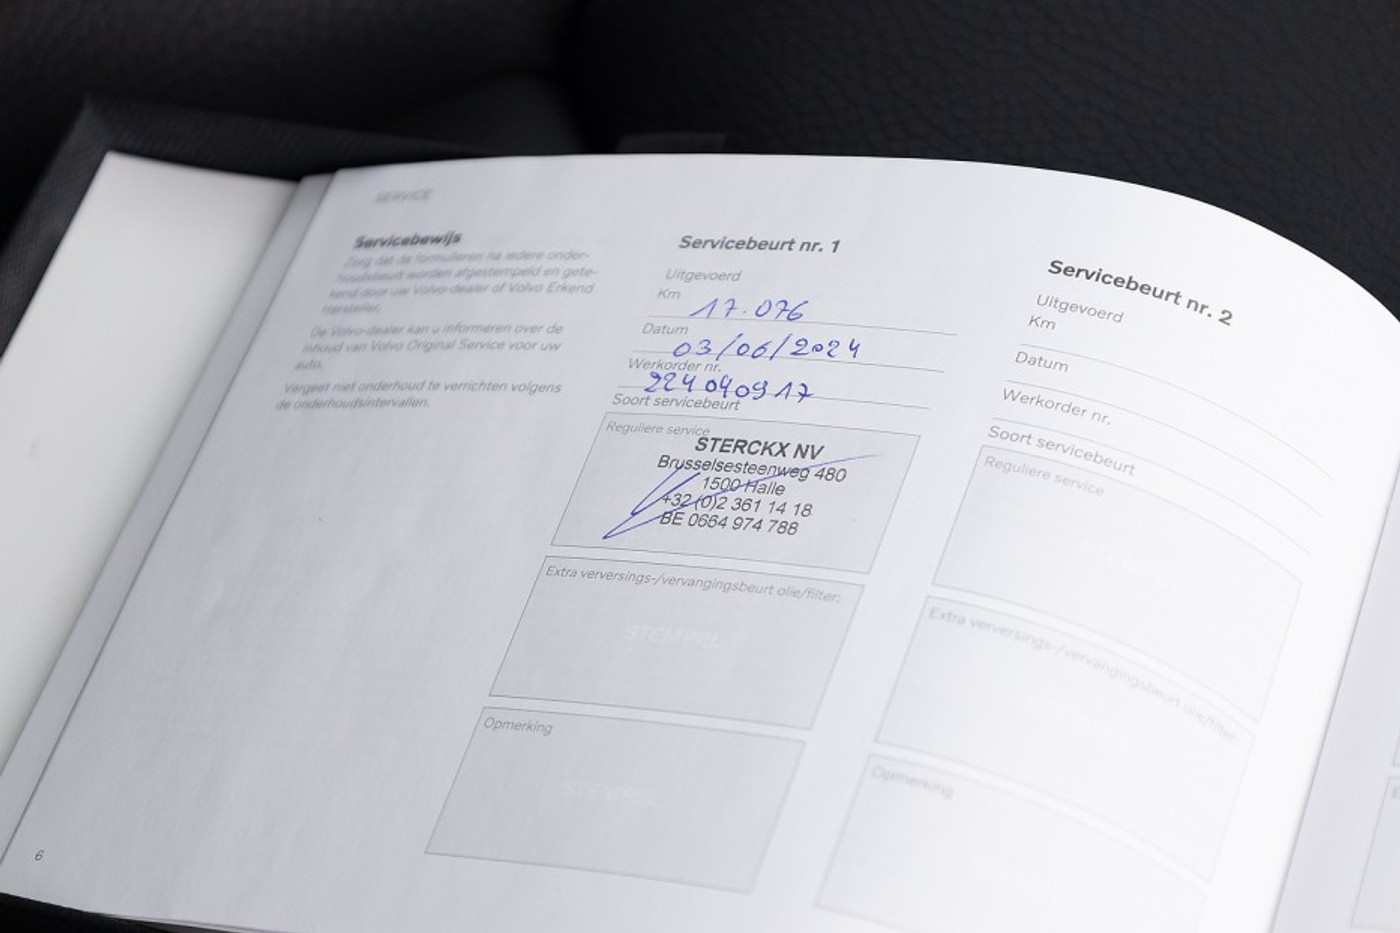 SERVICE
Servicebewijs
Zorg dat de formulieren na iedere onder-
houdsbeurt worden afgestempeld en gete-
kend door uw Volvo-dealer of Volvo Erkend
Hersteller.
De Volvo-dealer kan u informeren over de
inhoud van Volvo Original Service voor uw
auto.
Vergeet niet onderhoud te verrichten volgens
de onderhoudsintervallen.
6
Servicebeurt nr. 1
Uitgevoerd
Km 17.076
Datum 03/06/2024
Werkorder nr. 224040917
Soort servicebeurt
Reguliere service
STERCKX NV
Brusselsesteenweg 480
1500 Halle
+32 (0)2 361 14 18
BE 0664 974 788
Extra verversings-/vervangingsbeurt olie/filter:
STEMPEL
Opmerking
STEMPEL
Servicebeurt nr. 2
Uitgevoerd
Km
Datum
Werkorder nr.
Soort servicebeurt
Reguliere service
Extra verversings-/vervangingsbeurt olie/filter:
Opmerking